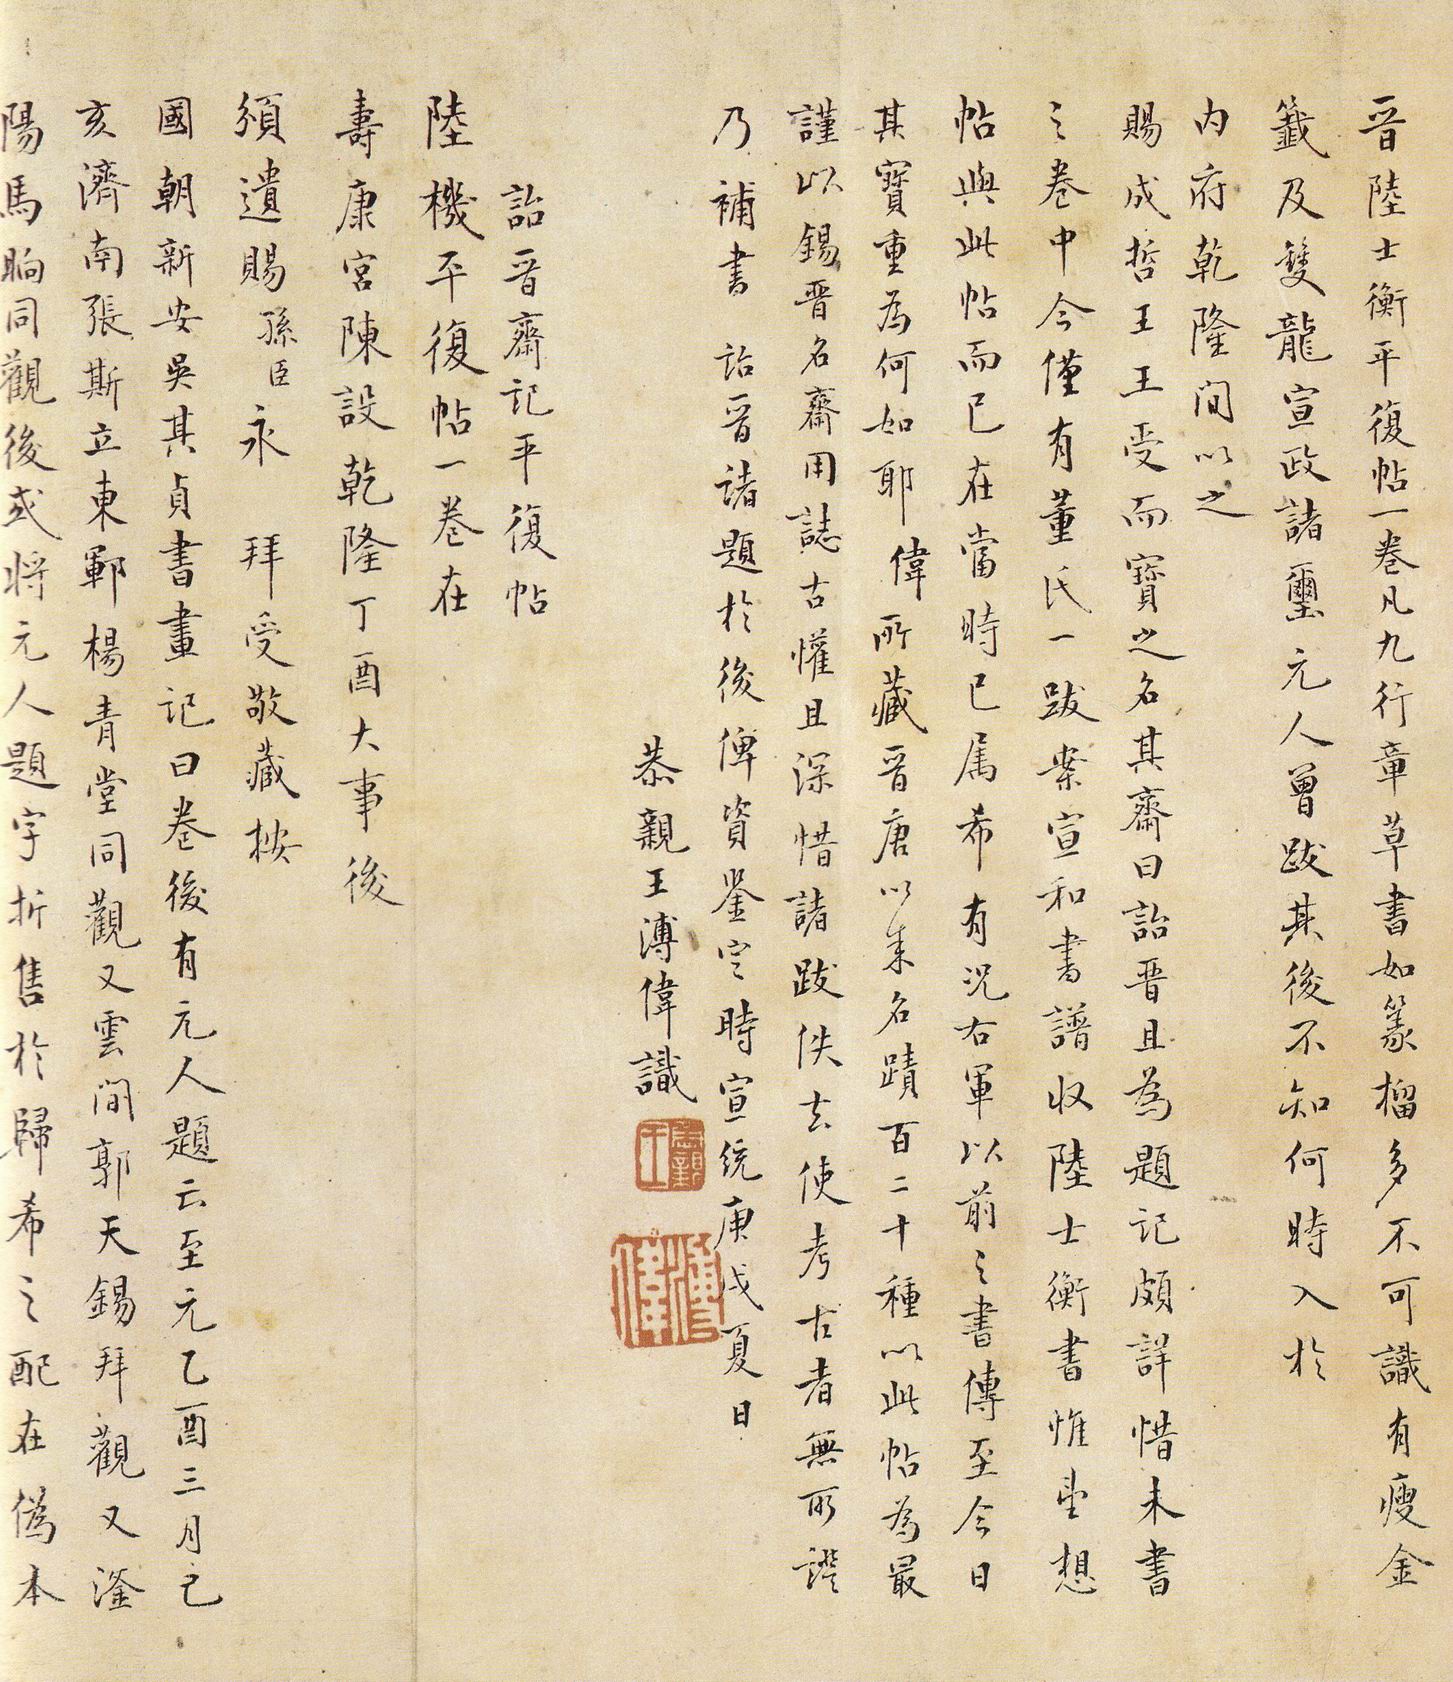 晋陸士衡平復帖一卷凡九行章草書如篆榴多不可識有瘦金
籤及雙龍宣政諸璽元人曾跋其後不知何時入於
内府乾隆间以之
賜成哲王王受而寶之名其齋曰詒晋且為題記頗詳惜未書
之卷中今僅有董氏一跋案宣和書譜收陸士衡書惟此想
帖與此帖而已在當時已属希有况右軍以前之書傳至今日
其寶重為何如耶偉所藏晋唐以来名蹟百二十種以此帖為最
謹以錫晋名齋用誌古懽且深惜諸跋佚去使考古者無所證
乃補書詒晋諸題於後俾資鉴定時宣統庚戌夏日
恭親王溥偉識
恭親王
溥偉
詒晋齋記平復帖
陸機平復帖一卷在
壽康宮陳設乾隆丁酉大事後
頒遺賜孫臣永拜受敬藏按
國朝新安吳其貞書畫記曰卷後有元人題云至元乙酉三月己
亥濟南張斯立東鄆楊青堂同觀又雲间郭天錫拜觀又滏
陽馬昫同觀後或将元人題字折售於歸希之配在偽本